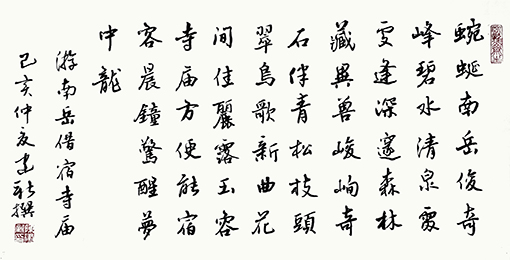 蜿蜒南岳俊奇
峰碧水清泉處
處逢深邃森林
藏異兽峻峋奇
石伴青松枝頭
翠鸟歌新曲花
间佳麗露玉容
寺庙方便能宿
客晨鐘驚醒夢
中龍
游南岳借宿寺庙
己亥仲夏撰